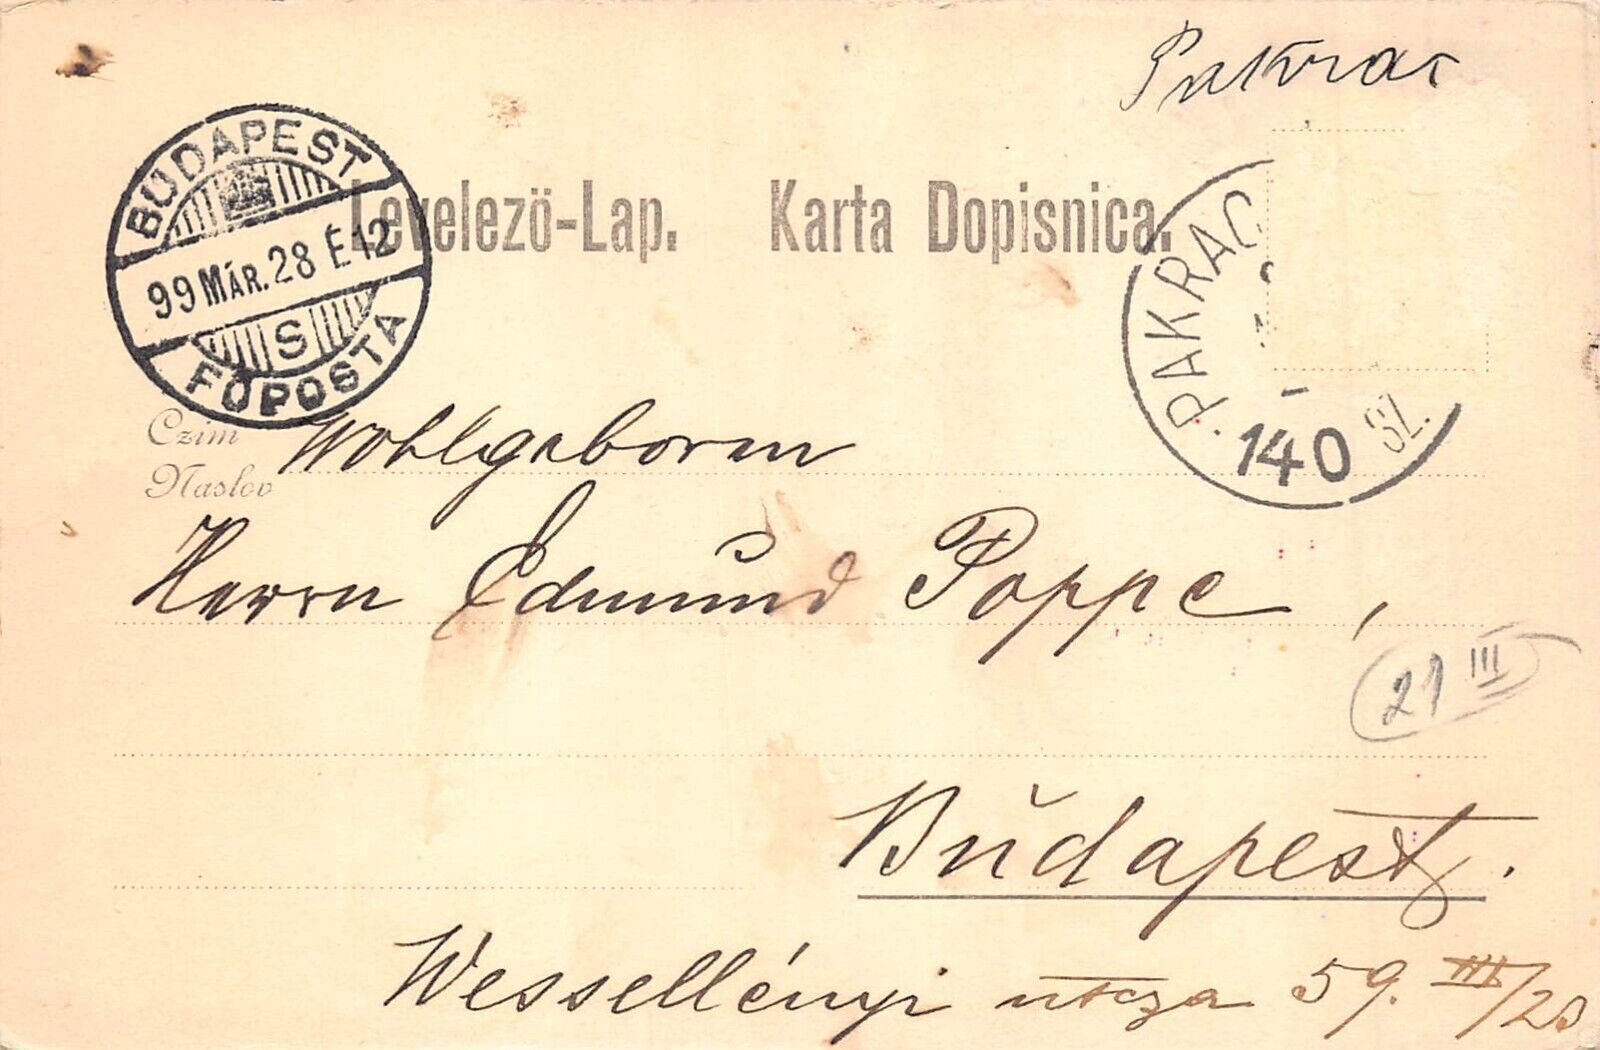 Pakrac
BUDAPEST
99 MÁR. 28 É 12
S
FŐPOSTA
Levelező-Lap. Karta Dopisnica.
PAKRAC
140 SZ.
Czim
Naslov
Wohlgeboren
Herrn Edmund Poppe,
21 III
Budapest.
Wessellényi utcza 59. III/20